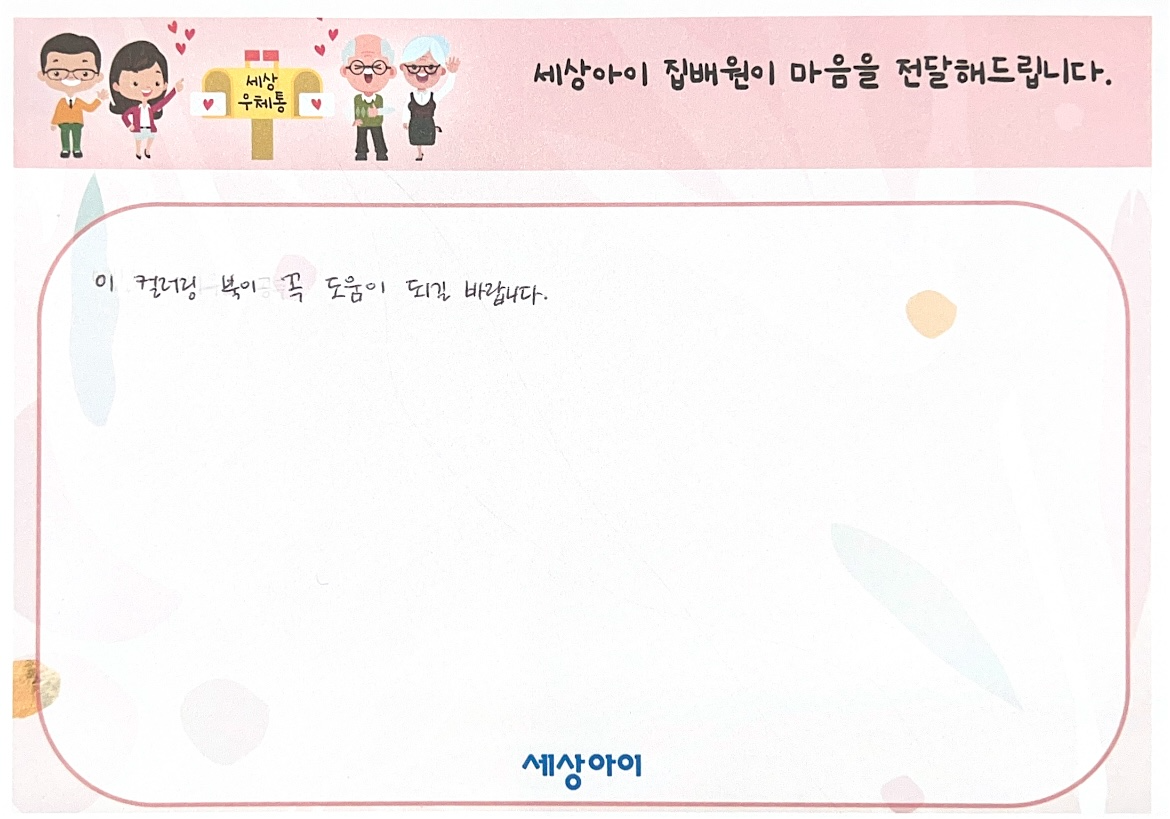 세상아이 집배원이 마음을 전달해드립니다.
세상
우체통
이 컬러링 북이 꼭 도움이 되길 바랍니다.
세상아이